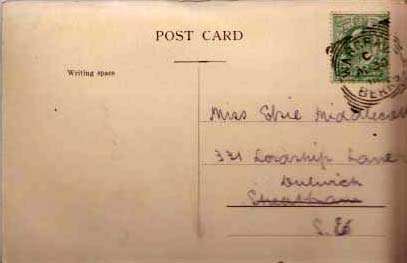 POST CARD
Writing space
WARGRA
C
BERKS
Miss Elsie Middleca
331 Lordship Lane
Dulwich
Streatham
S.E